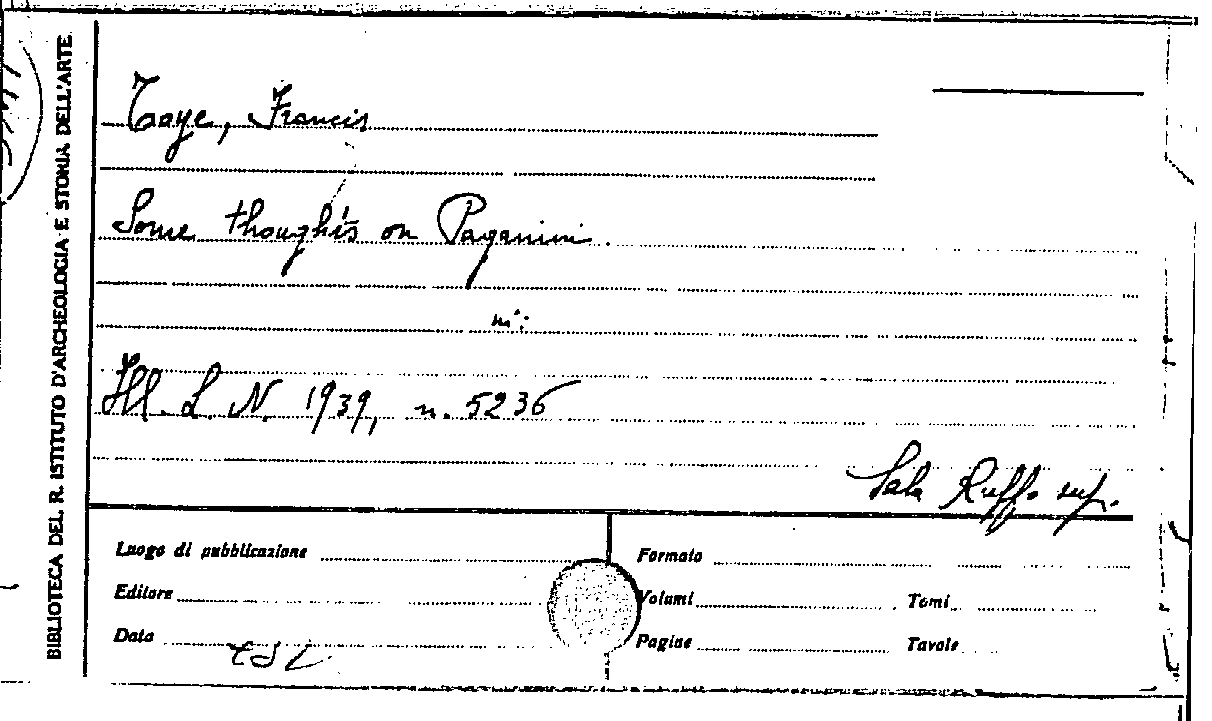 BIBLIOTECA DEL R. ISTITUTO D'ARCHEOLOGIA E STORIA DELL'ARTE
Toye, Francis
Some thoughts on Paganini.
in:
Ill. L. N. 1939, n. 5236
Sala Ruffo sup.
Luogo di pubblicazione
Editore
Data
Formato
Volumi
Tomi
Pagine
Tavole